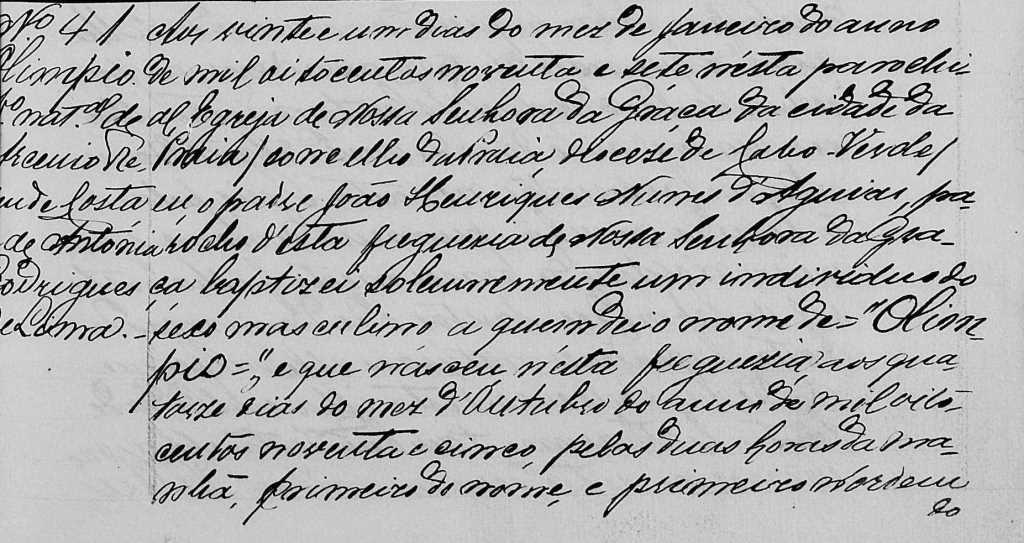 Nº 41
Olimpio.
fº. nat.al de
Arcenio Re-
nde Costa
de Antónia
Rodrigues
de Lima.
Aos vinte e um dias do mez de Janeiro do anno
de mil oitocentos noventa e sete n'esta parochi-
al Egreja de Nossa Senhora da Graça da cidade da
Praia / concelho da Praia, diocese de Cabo-Verde /
eu o padre João Henriques Nunes d'Aguiar, pa-
rocho d'esta freguezia de Nossa Senhora da Gra-
ça baptizei solemnemente um individuo do
sexo masculino a quem dei o nome de = "Olim-
pio =", e que nasceu n'esta freguezia, aos qua-
torze dias do mez d'Outubro do anno de mil oito-
centos noventa e cinco, pelas duas horas da ma-
nhã, primeiro do nome, e primeiro n'ordem
do